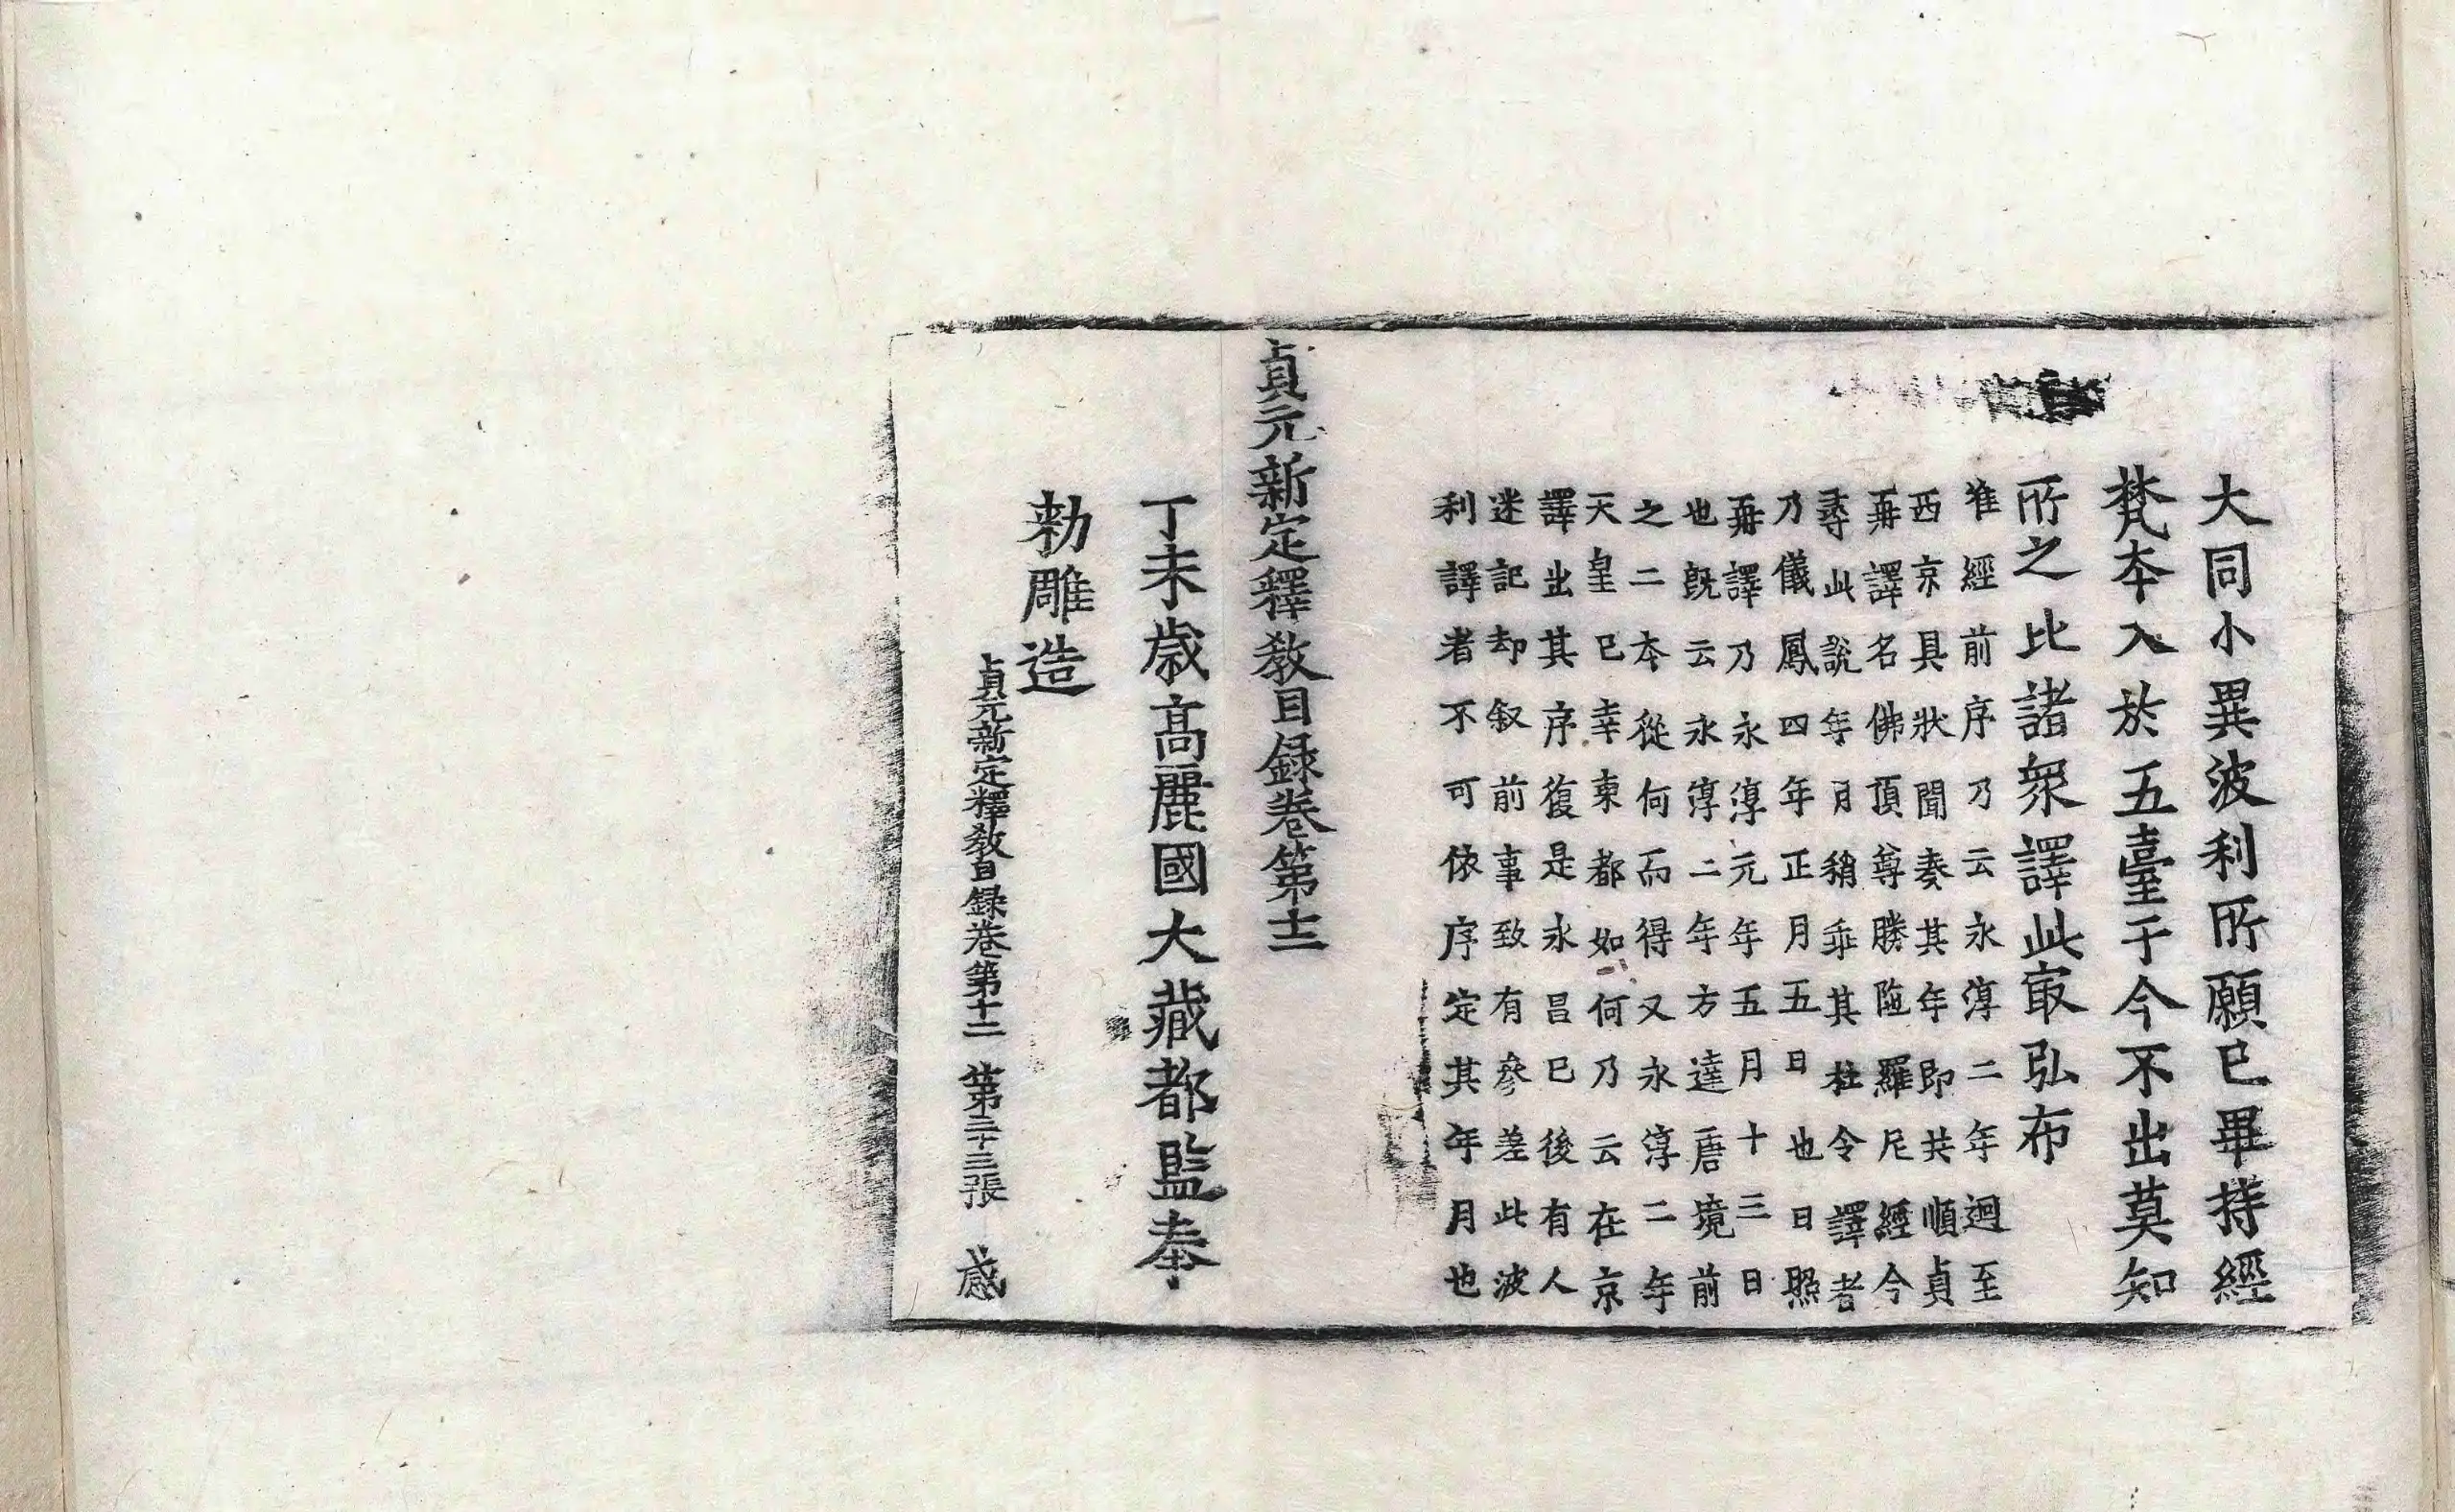 大同小異波利所願已畢持經
梵本入於五臺于今不出莫知
所之比諸衆譯此㝡弘布
准經前序乃云永淳二年迴至
西京具狀聞奏其年即共順貞
再譯名佛頂尊勝陁羅尼經今
尋此說年月稍乖其杜令譯者
乃儀鳳四年正月五日也日照
再譯乃永淳元年五月十三日
也旣云永淳二年方達唐境前
之二本從何而得又永淳二年
天皇已幸東都如何乃云在京
譯出其序復是永昌已後有人
迷記却叙前事致有參差此波
利譯者不可依序定其年月也
貞元新定釋教目録卷第十二
丁未歳高麗國大藏都監奉
勑雕造
貞元新定釋教目録卷第十二 第二十三張 感